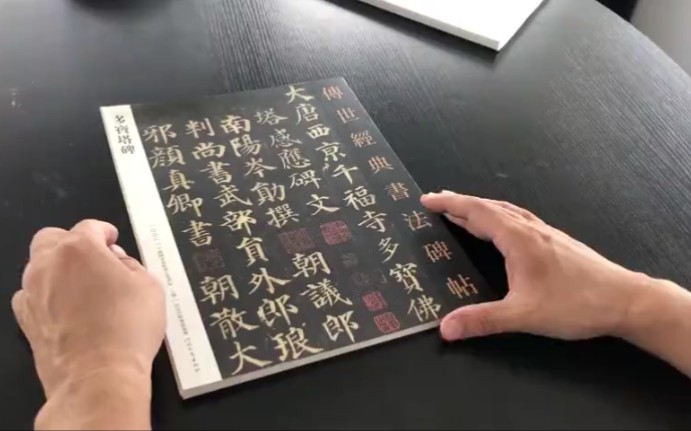 傳世經典書法碑帖
大唐西京千福寺多寶佛
塔感應碑文
南陽岑勛撰 朝議郎
判尚書武部員外郎琅
邪顏真卿書 朝散大
多寶塔碑